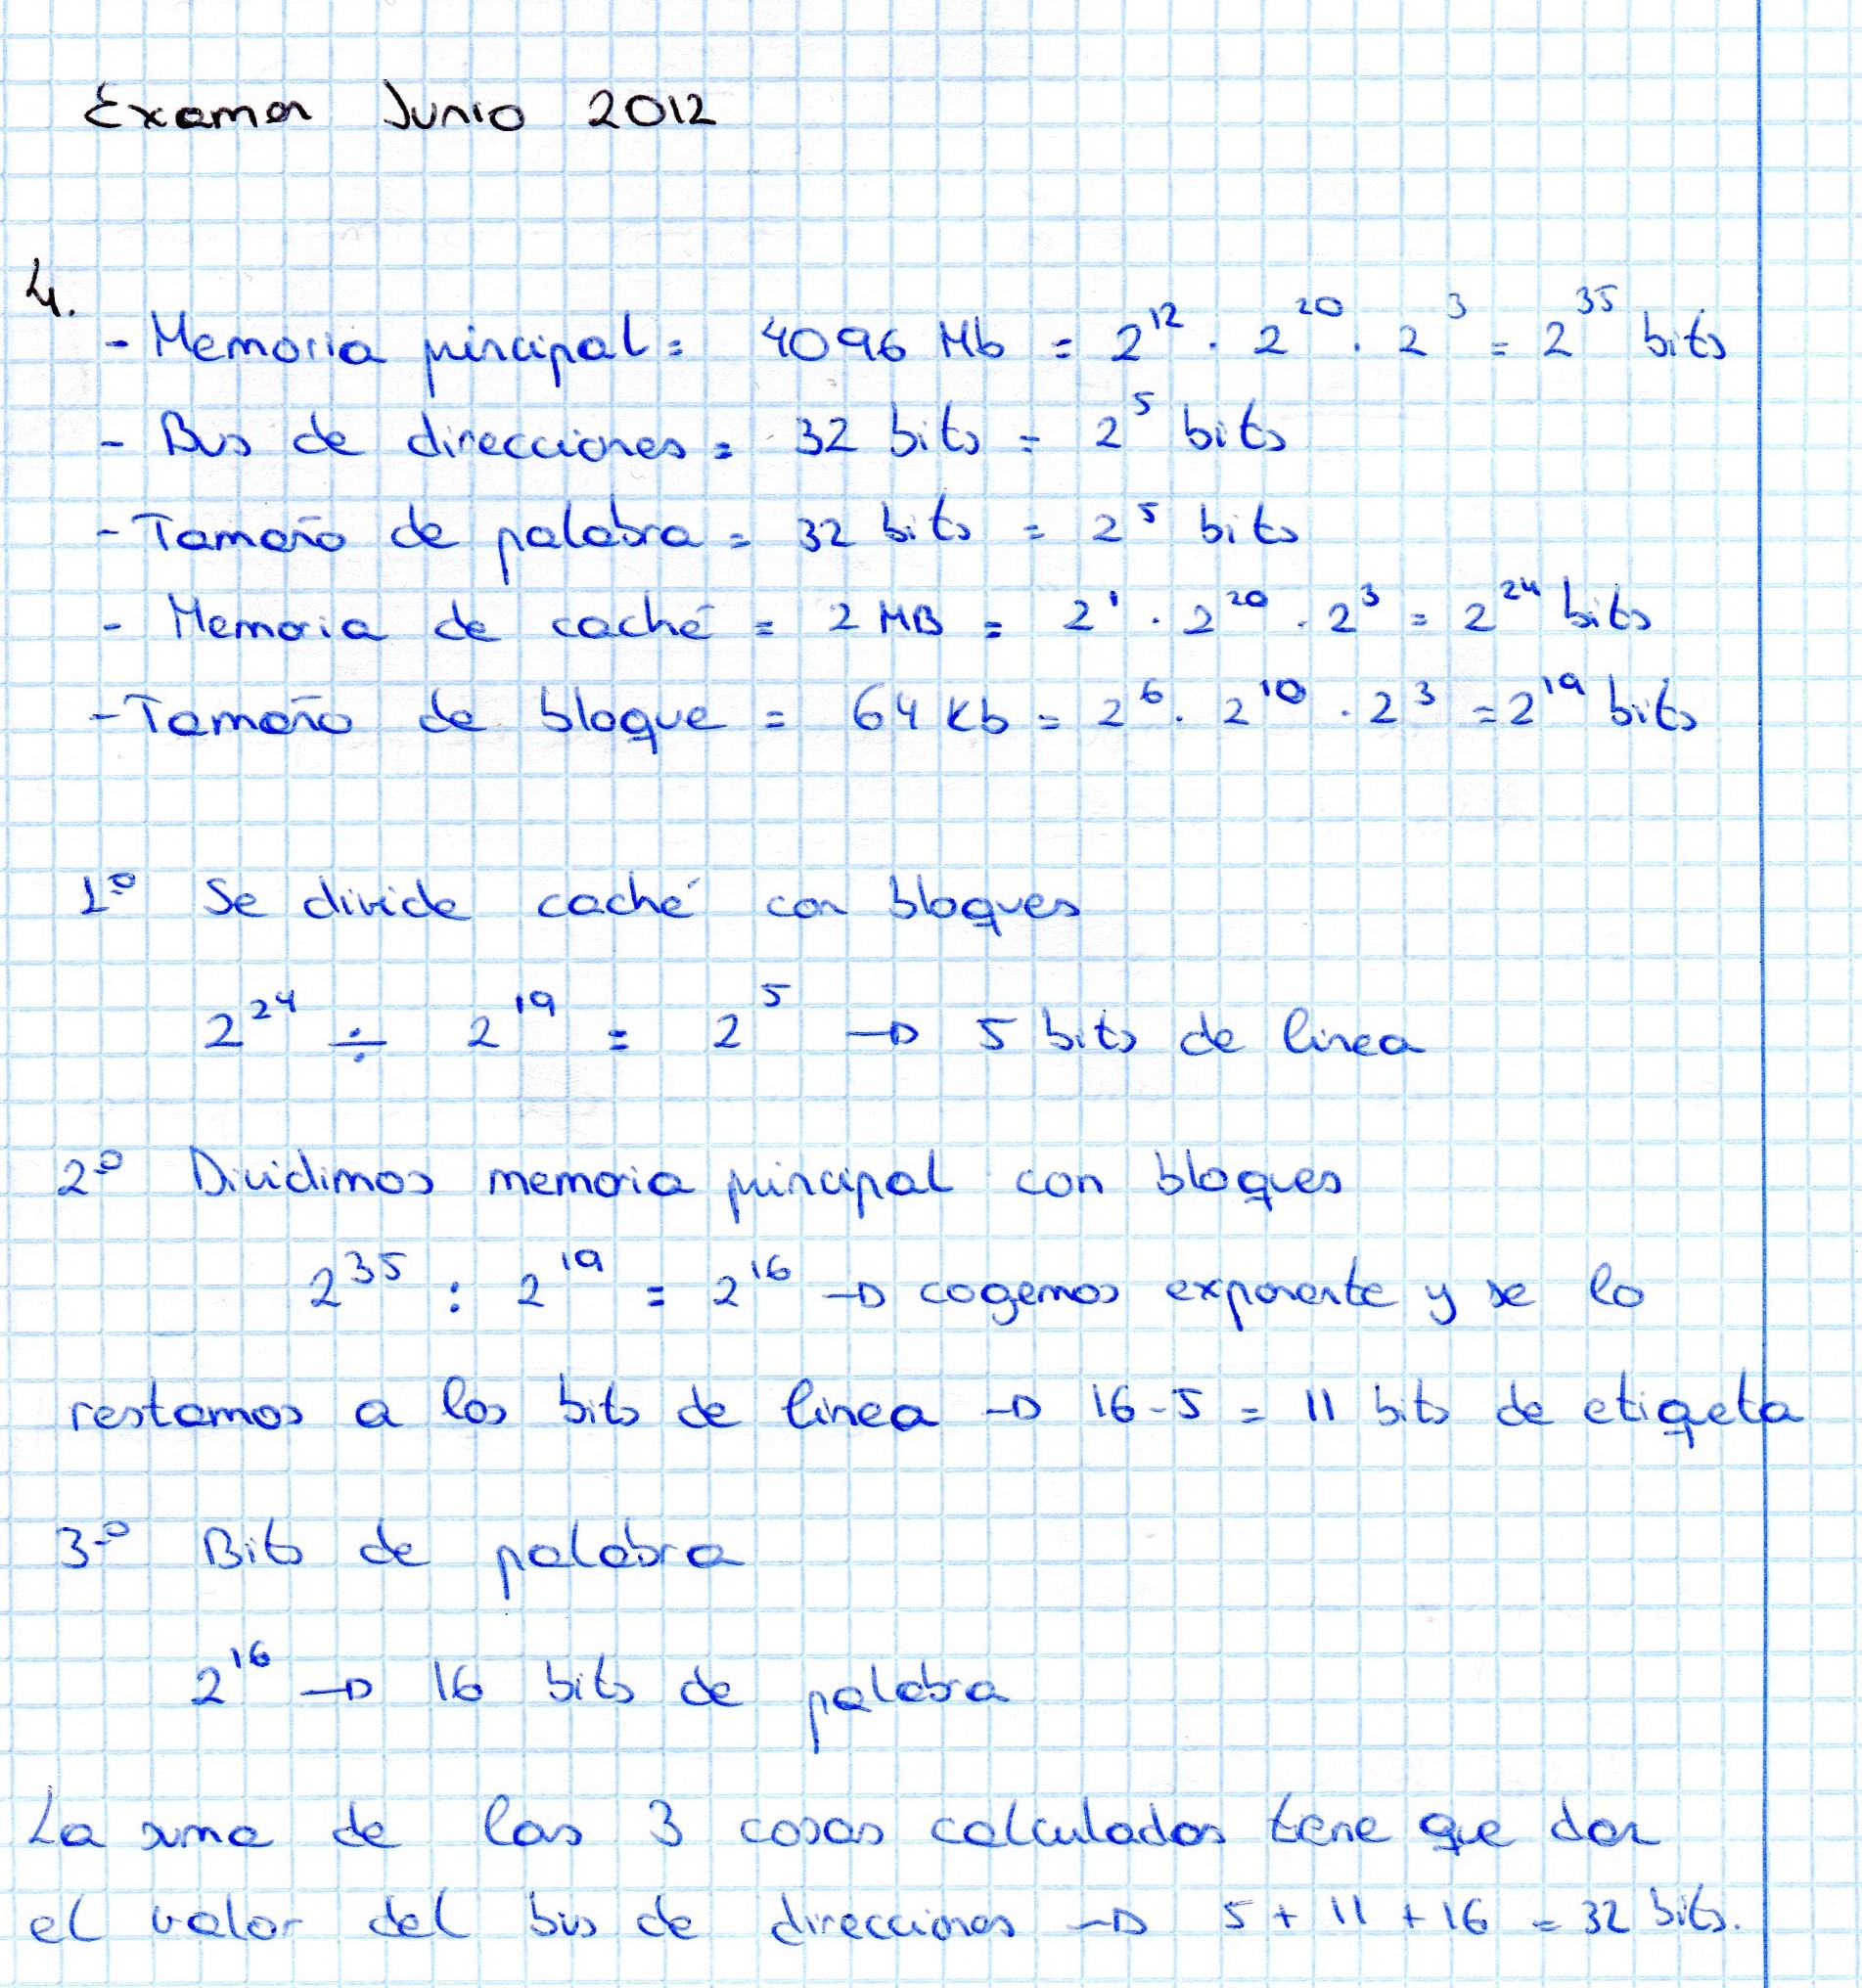 Examen Junio 2012
4.
- Memoria principal = 4096 Mb = 2^12 · 2^20 · 2^3 = 2^35 bits
- Bus de direcciones = 32 bits = 2^5 bits
- Tamaño de palabra = 32 bits = 2^5 bits
- Memoria de caché = 2 MB = 2^1 · 2^20 · 2^3 = 2^24 bits
- Tamaño de bloque = 64 Kb = 2^6 · 2^10 · 2^3 = 2^19 bits
1º Se divide caché con bloques
2^24 ÷ 2^19 = 2^5 → 5 bits de linea
2º Dividimos memoria principal con bloques
2^35 : 2^19 = 2^16 → cogemos exponente y se lo
restamos a los bits de linea → 16 - 5 = 11 bits de etiqueta
3º Bits de palabra
2^16 → 16 bits de palabra
La suma de las 3 cosas calculadas tiene que dar
el valor del bus de direcciones → 5 + 11 + 16 = 32 bits.